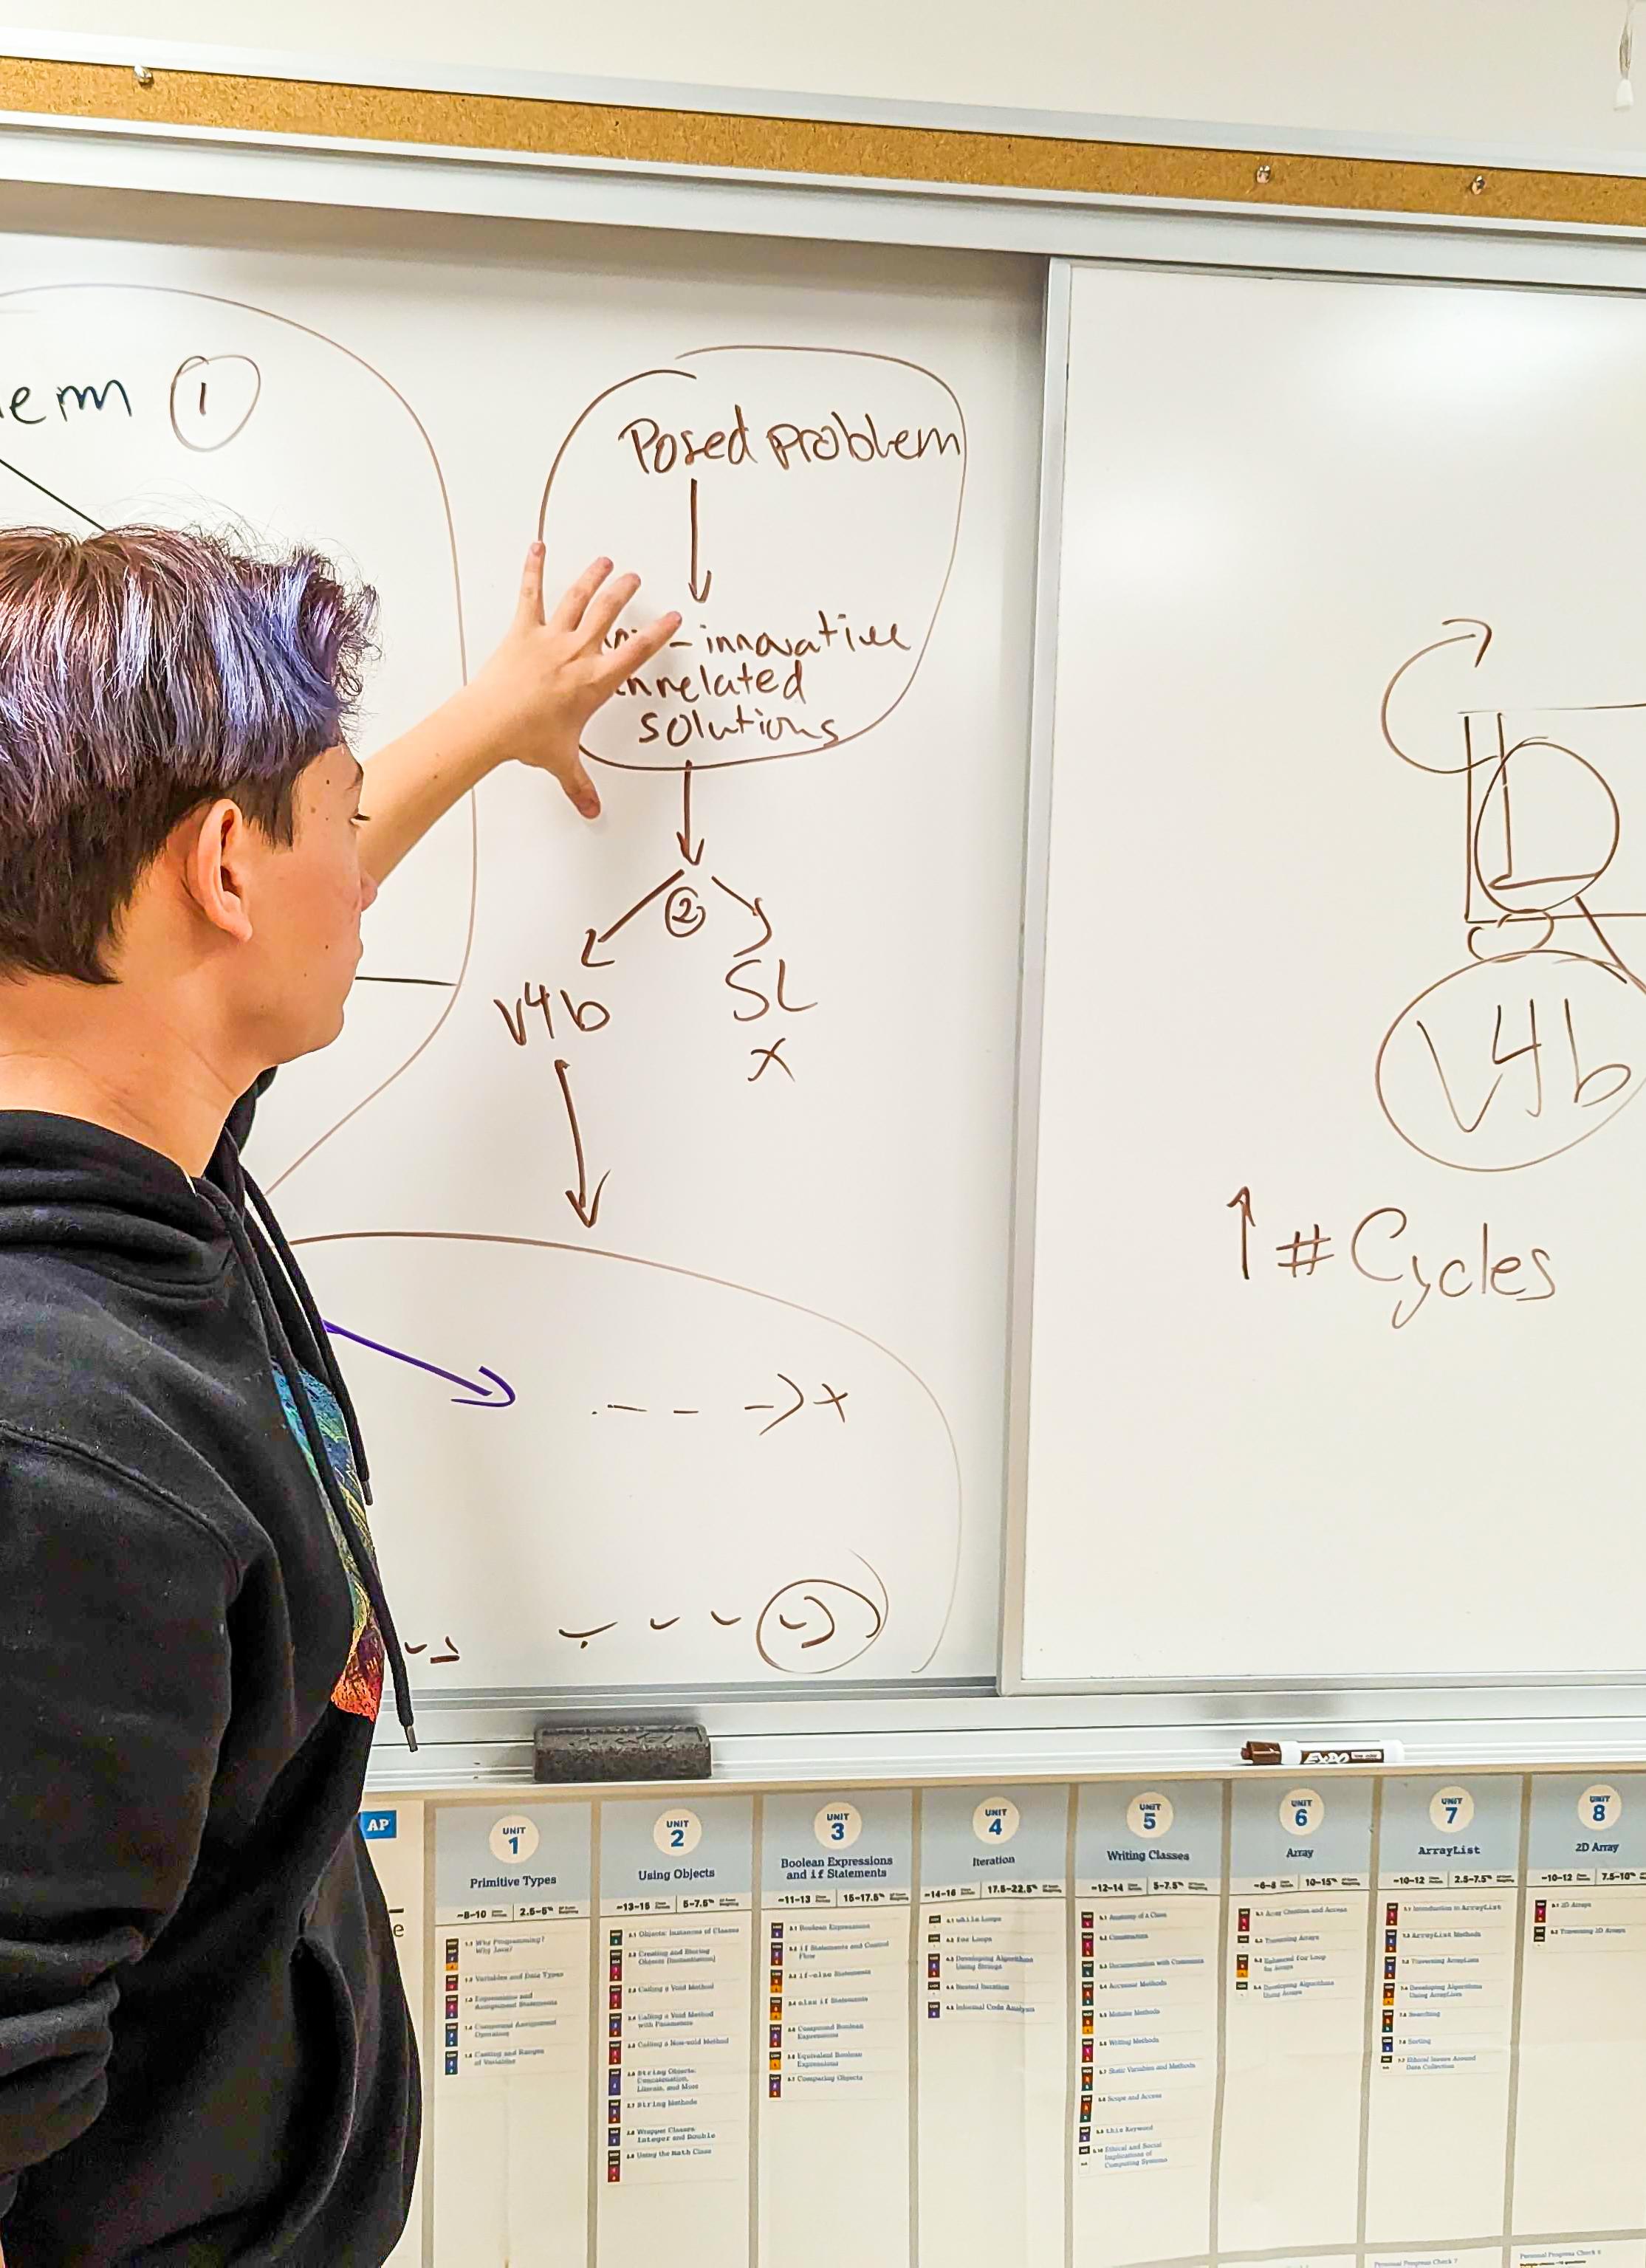 em 1
Posed problem
-innovative
related
solutions
2
V4b
SL
x
V4b
↑ # Cycles
x
EXPO
AP
UNIT 1
Primitive Types
~8-10
2.5-5%
1.1 Why Programming?
Why Java?
1.2 Variables and Data Types
1.3 Expressions and
Assignment Statements
1.4 Compound Assignment
Operators
1.5 Casting and Ranges
of Variables
UNIT 2
Using Objects
~13-15
5-7.5%
2.1 Objects: Instances of Classes
2.2 Creating and Storing
Objects (Instantiation)
2.3 Calling a Void Method
2.4 Calling a Void Method
with Parameters
2.5 Calling a Non-void Method
2.6 String Objects:
Concatenation,
Literals, and More
2.7 String Methods
2.8 Wrapper Classes:
Integer and Double
2.9 Using the Math Class
UNIT 3
Boolean Expressions
and if Statements
~11-13
15-17.5%
3.1 Boolean Expressions
3.2 if Statements and Control
Flow
3.3 if-else Statements
3.4 else if Statements
3.5 Compound Boolean
Expressions
3.6 Equivalent Boolean
Expressions
3.7 Comparing Objects
UNIT 4
Iteration
~14-16
17.5-22.5%
4.1 while Loops
4.2 for Loops
4.3 Developing Algorithms
Using Strings
4.4 Nested Iteration
4.5 Informal Code Analysis
UNIT 5
Writing Classes
~12-14
5-7.5%
5.1 Anatomy of a Class
5.2 Constructors
5.3 Documentation with Comments
5.4 Accessor Methods
5.5 Mutator Methods
5.6 Writing Methods
5.7 Static Variables and Methods
5.8 Scope and Access
5.9 this Keyword
5.10 Ethical and Social
Implications of
Computing Systems
UNIT 6
Array
~6-8
10-15%
6.1 Array Creation and Access
6.2 Traversing Arrays
6.3 Enhanced for Loop
for Arrays
6.4 Developing Algorithms
Using Arrays
UNIT 7
ArrayList
~10-12
2.5-7.5%
7.1 Introduction to ArrayList
7.2 ArrayList Methods
7.3 Traversing ArrayLists
7.4 Developing Algorithms
Using ArrayLists
7.5 Searching
7.6 Sorting
7.7 Ethical Issues Around
Data Collection
UNIT 8
2D Array
~10-12
7.5-10%
8.1 2D Arrays
8.2 Traversing 2D Arrays
Personal Progress Check 7
Personal Progress Check 8